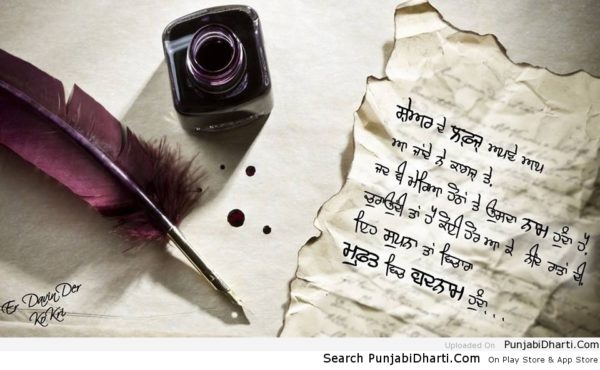 ਸ਼ੇਅਰ ਦੇ ਲਫ਼ਜ਼ ਆਪਣੇ ਆਪ
ਆ ਜਾਂਦੇ ਨੇ ਕਾਗਜ਼ ਤੇ,
ਜਦ ਵੀ ਮੇਰਿਆ ਹੋਠਾਂ ਤੇ ਉਸਦਾ ਨਾਮ ਹੁੰਦਾ ਹੈ,
ਚੁਰਾਉਂਦੀ ਤਾਂ ਹੈ ਕੋਈ ਹੋਰ ਆ ਕੇ ਨੀਂਦ ਰਾਤਾਂ ਦੀ,
ਇਹ ਸੁਪਨਾ ਤਾਂ ਵਿਚਾਰਾ
ਮੁਫ਼ਤ ਵਿਚ ਬਦਨਾਮ ਹੁੰਦਾ...
Er DavinDer
KoKri
Uploaded On PunjabiDharti.Com
Search PunjabiDharti.Com On Play Store & App Store